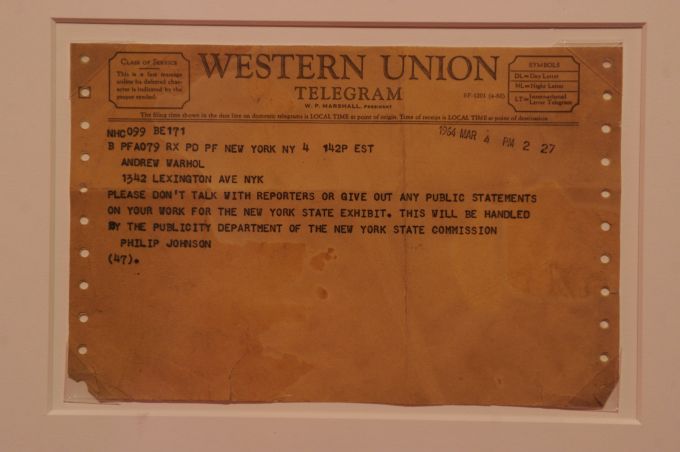 CLASS OF SERVICE
This is a fast message
unless its deferred char-
acter is indicated by the
proper symbol.
WESTERN UNION
TELEGRAM
W. P. MARSHALL, PRESIDENT
SYMBOLS
DL=Day Letter
NL=Night Letter
LT=International Letter Telegram
The filing time shown in the date line on domestic telegrams is LOCAL TIME at point of origin. Time of receipt is LOCAL TIME at point of destination
1964 MAR 4 PM 2 27
NHC099 BE171
B PFA079 RX PD PF NEW YORK NY 4 142P EST
ANDREW WARHOL
1342 LEXINGTON AVE NYK
PLEASE DON'T TALK WITH REPORTERS OR GIVE OUT ANY PUBLIC STATEMENTS
ON YOUR WORK FOR THE NEW YORK STATE EXHIBIT. THIS WILL BE HANDLED
BY THE PUBLICITY DEPARTMENT OF THE NEW YORK STATE COMMISSION
PHILIP JOHNSON
(47).